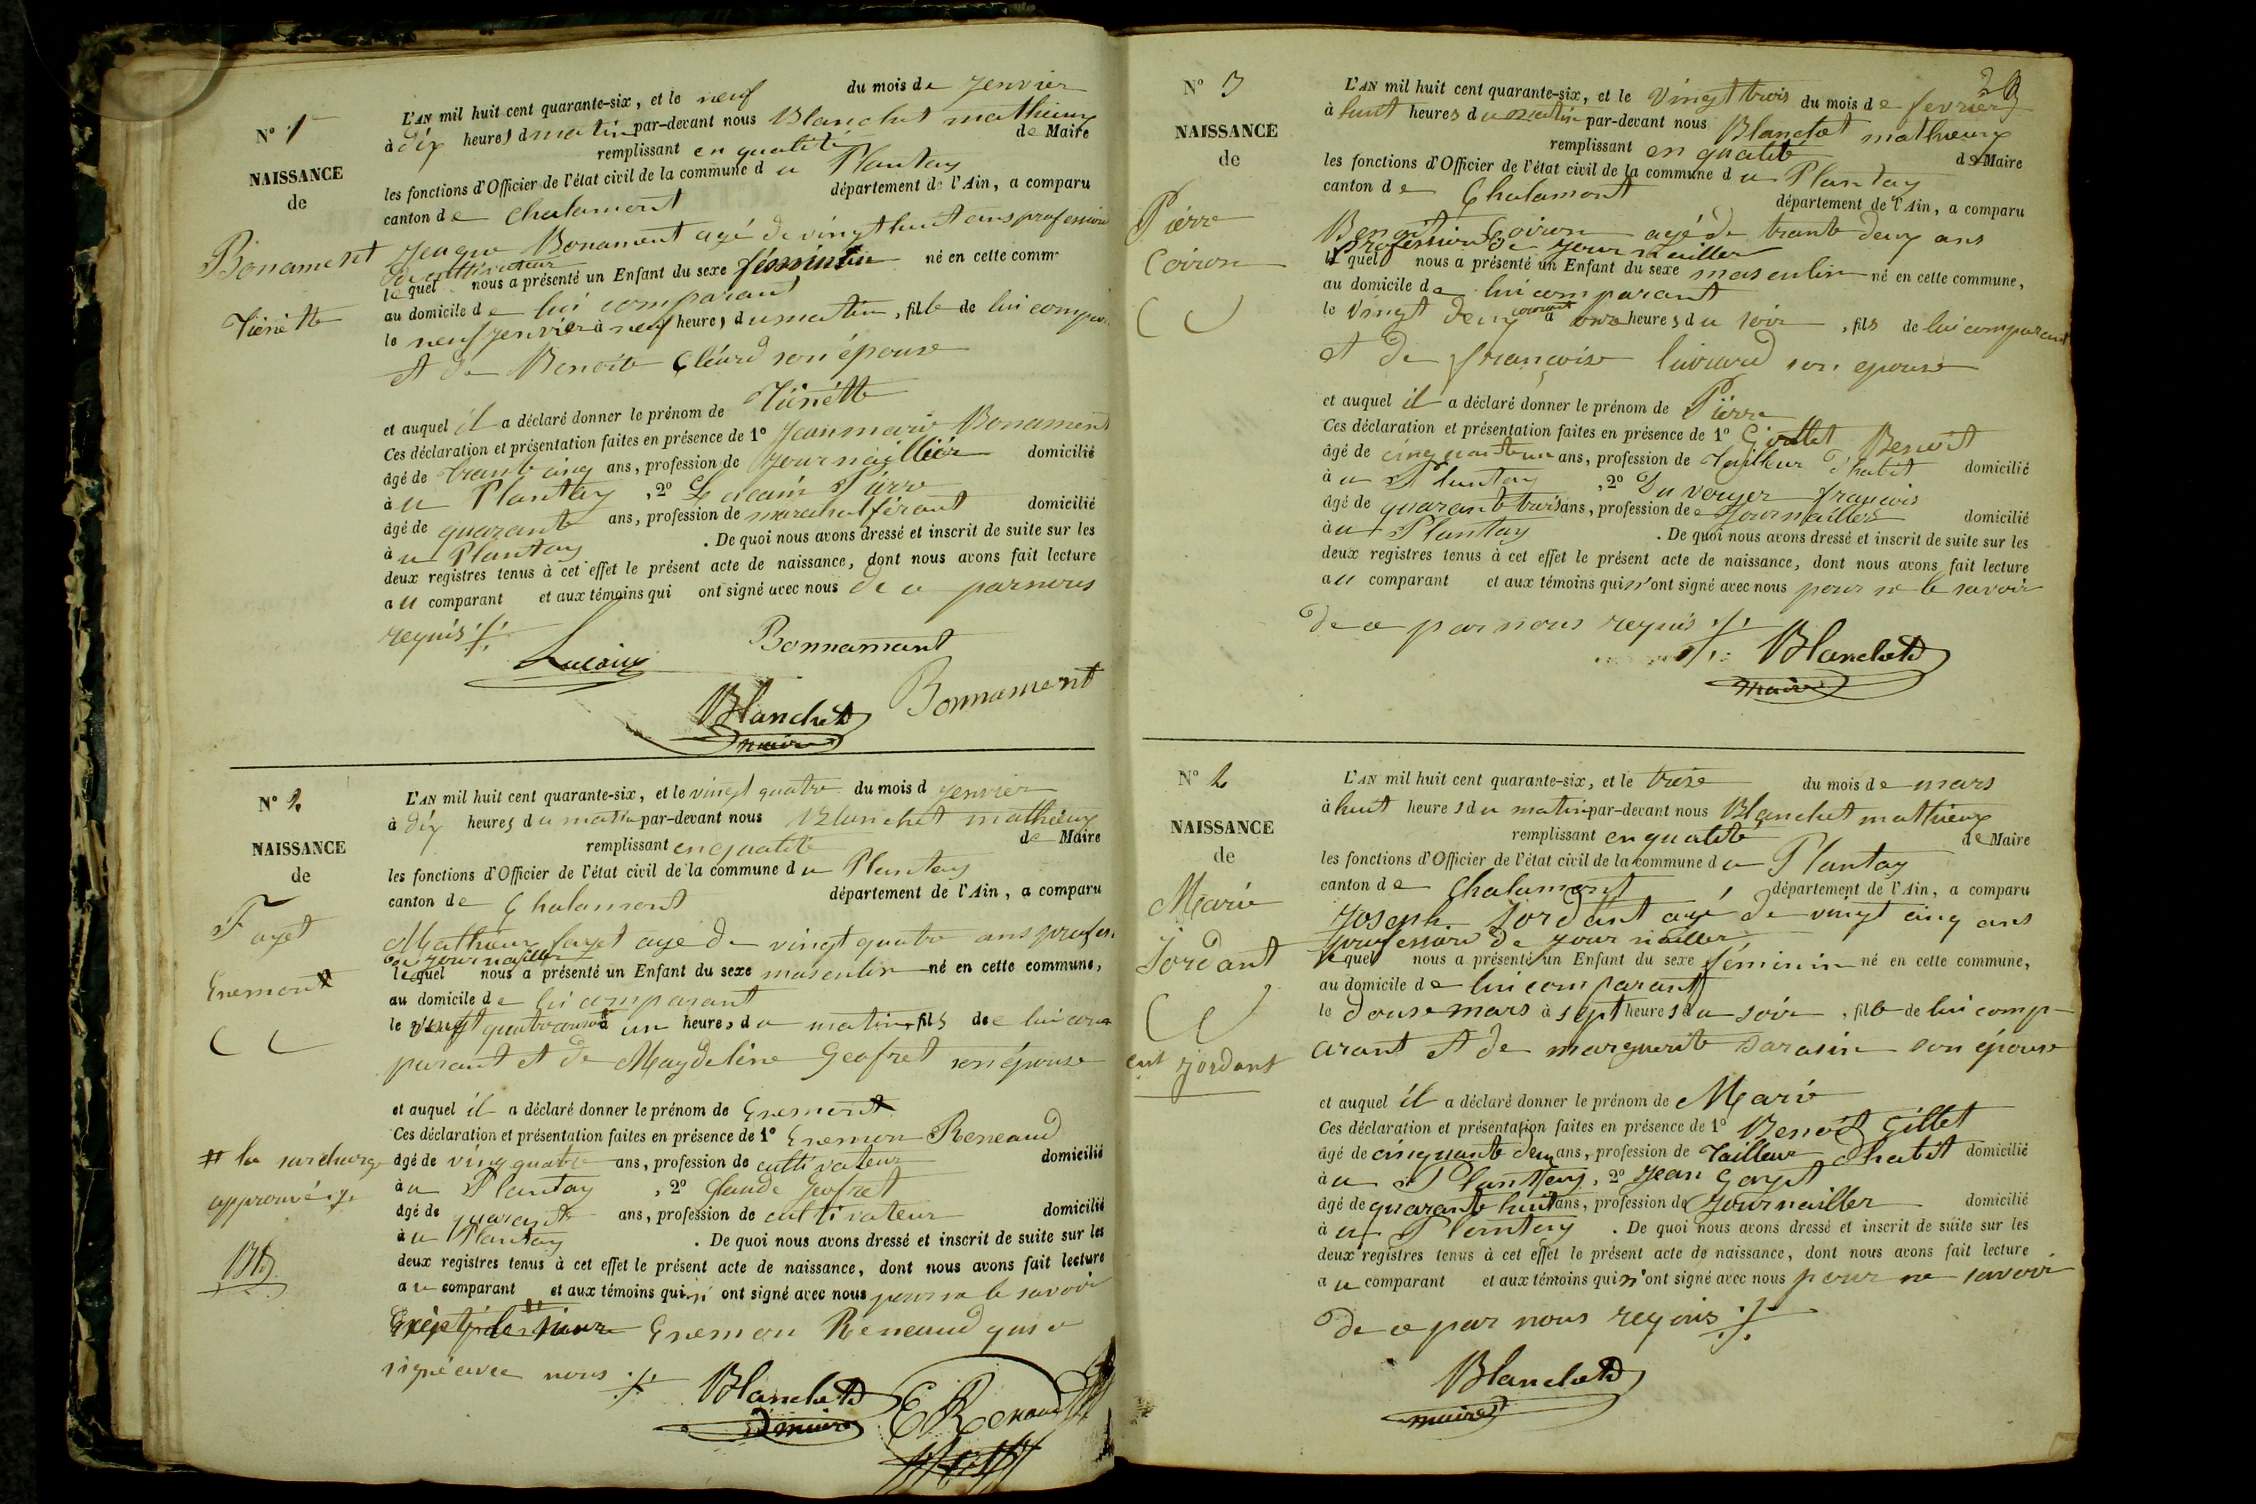 N° 1
NAISSANCE
de
Bonament
L'AN mil huit cent quarante-six, et le neuf du mois de Jenvier
à dix heures d matin par-devant nous Blanchet mathieux
remplissant en qualité de Maire
les fonctions d'Officier de l'état civil de la commune du Plantay
canton de Chalamont département de l'Ain, a comparu
Bonament agé de vingt huit ans profession
de cultivateur
lequel nous a présenté un Enfant du sexe féminin né en cette comm
au domicile de lui comparant
le neuf jenvier à neuf heures du matin, fille de lui compar
et de Benoite son épouse
et auquel il a déclaré donner le prénom de
Ces déclaration et présentation faites en présence de 1° Jeanmarie Bonament
âgé de trante cinq ans, profession de journaillier domicilié
à u Plantay, 2° Pierre
âgé de quarante ans, profession de marechal férant domicilié
à u Plantay. De quoi nous avons dressé et inscrit de suite sur les
deux registres tenus à cet effet le présent acte de naissance, dont nous avons fait lecture
au comparant et aux témoins qui ont signé avec nous de ce par nous
requis ./.
Bonnamant
Blanchet Bonnament
maire
N° 2
NAISSANCE
de
Fayet
Enemont
L'AN mil huit cent quarante-six, et le vingt quatre du mois d jenvier
à dix heures du matin par-devant nous Blanchet mathieux
remplissant en qualité de Maire
les fonctions d'Officier de l'état civil de la commune du Plantay
canton de Chalamont département de l'Ain, a comparu
Mathieux fayet age de vingt quatre ans profes
de journailler
lequel nous a présenté un Enfant du sexe masculin né en cette commune,
au domicile de lui comparant
le vingt quatre à un heures du matin, fils de lui com
parant et de Magdeleine Geofret son épouse
et auquel il a déclaré donner le prénom de Enemont
Ces déclaration et présentation faites en présence de 1° Enemon Reneaud
# la surcharge
approuvé ./.
âgé de vingquatre ans, profession de cultivateur domicilié
à u Plantay, 2° Glaude Geofret
âgé de quarante ans, profession de cultivateur domicilié
à u Plantay. De quoi nous avons dressé et inscrit de suite sur les
deux registres tenus à cet effet le présent acte de naissance, dont nous avons fait lecture
au comparant et aux témoins qui n' ont signé avec nous pour ne le savoir
Enemon Reneaud qui a
signé avec nous ./.
Blanchet ERenaud
maire
N° 3
NAISSANCE
de
Pierre
Coiron
L'AN mil huit cent quarante-six, et le vingt trois du mois de fevrier
à huit heures du matin par-devant nous Blanchet mathieux
remplissant en qualité de Maire
les fonctions d'Officier de l'état civil de la commune du Plantay
canton de Chalamont département de l'Ain, a comparu
Benoit Coiron agé de trante deux ans
Profession de journailler
lequel nous a présenté un Enfant du sexe masculin né en cette commune,
au domicile de lui comparant
le vingt deux courant à onze heures du soir, fils de lui comparant
et de françoise son epouse
et auquel il a déclaré donner le prénom de Pierre
Ces déclaration et présentation faites en présence de 1° Gillet Benoit
âgé de cinquante un ans, profession de Tailleur d'habit domicilié
à u Plantay, 2° Du verger francois
âgé de quarante trois ans, profession de journailler domicilié
à u Plantay. De quoi nous avons dressé et inscrit de suite sur les
deux registres tenus à cet effet le présent acte de naissance, dont nous avons fait lecture
au comparant et aux témoins qui n'ont signé avec nous pour ne le savoir
de ce par nous requis ./.
Blanchet
maire
N°
NAISSANCE
de
Marie
Jordant
L'AN mil huit cent quarante-six, et le treise du mois de mars
à huit heures du matin par-devant nous Blanchet mathieux
remplissant en qualité de Maire
les fonctions d'Officier de l'état civil de la commune du Plantay
canton de Chalamont département de l'Ain, a comparu
Joseph Jordant agé de vingt cinq ans
profession de journailler
lequel nous a présenté un Enfant du sexe féminin né en cette commune,
au domicile de lui comparant
le douse mars à sept heures du soir, fille de lui comp
arant et de marguerite Sarasin son épouse
et auquel il a déclaré donner le prénom de Marie
Ces déclaration et présentation faites en présence de 1° Benoit Gillet
âgé de cinquante deux ans, profession de Tailleur d'habit domicilié
à u Plantay, 2° Jean Gayet
âgé de quarante huit ans, profession de journailler domicilié
à u Plantay. De quoi nous avons dressé et inscrit de suite sur les
deux registres tenus à cet effet le présent acte de naissance, dont nous avons fait lecture
au comparant et aux témoins qui n'ont signé avec nous pour ne savoir
de ce par nous reqois ./.
Blanchet
maire